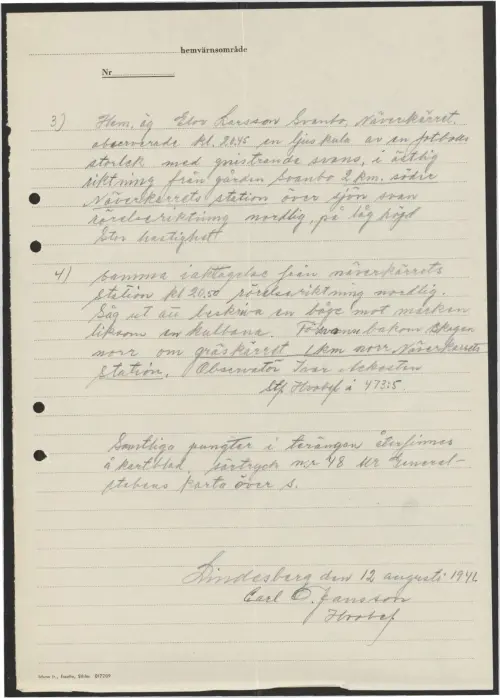 hemvärnsområde
Nr
3) Hem. äg Elov Larsson Svanbo, Näverkärret.
observerade kl. 20.45 en ljuskula av en fotbolls
storlek med gnistrande svans, i östlig
riktning från gården Svanbo 2 km. södra
Näverkärrets station över sjön svan
rörelseriktning nordlig, på låg höjd
Stor hastighet
4) Samma iakttagelse från näverkärrets
Station kl 20.50 rörelseriktning nordlig.
Såg ut att beskriva en båge mot marken
liksom en kulbana. Försvann bakom skogen
norr om gräskärret 1 km norr Näverkärrets
Station. Observatör Ivar
Stf Hvobef å 4735
Samtliga pungter i terrängen återfinnes
å kartblad, särtryck nr 48 ur General-
stabens karta över s.
Lindesberg den 12 augusti 1946
Carl O. Jansson
Hvobef